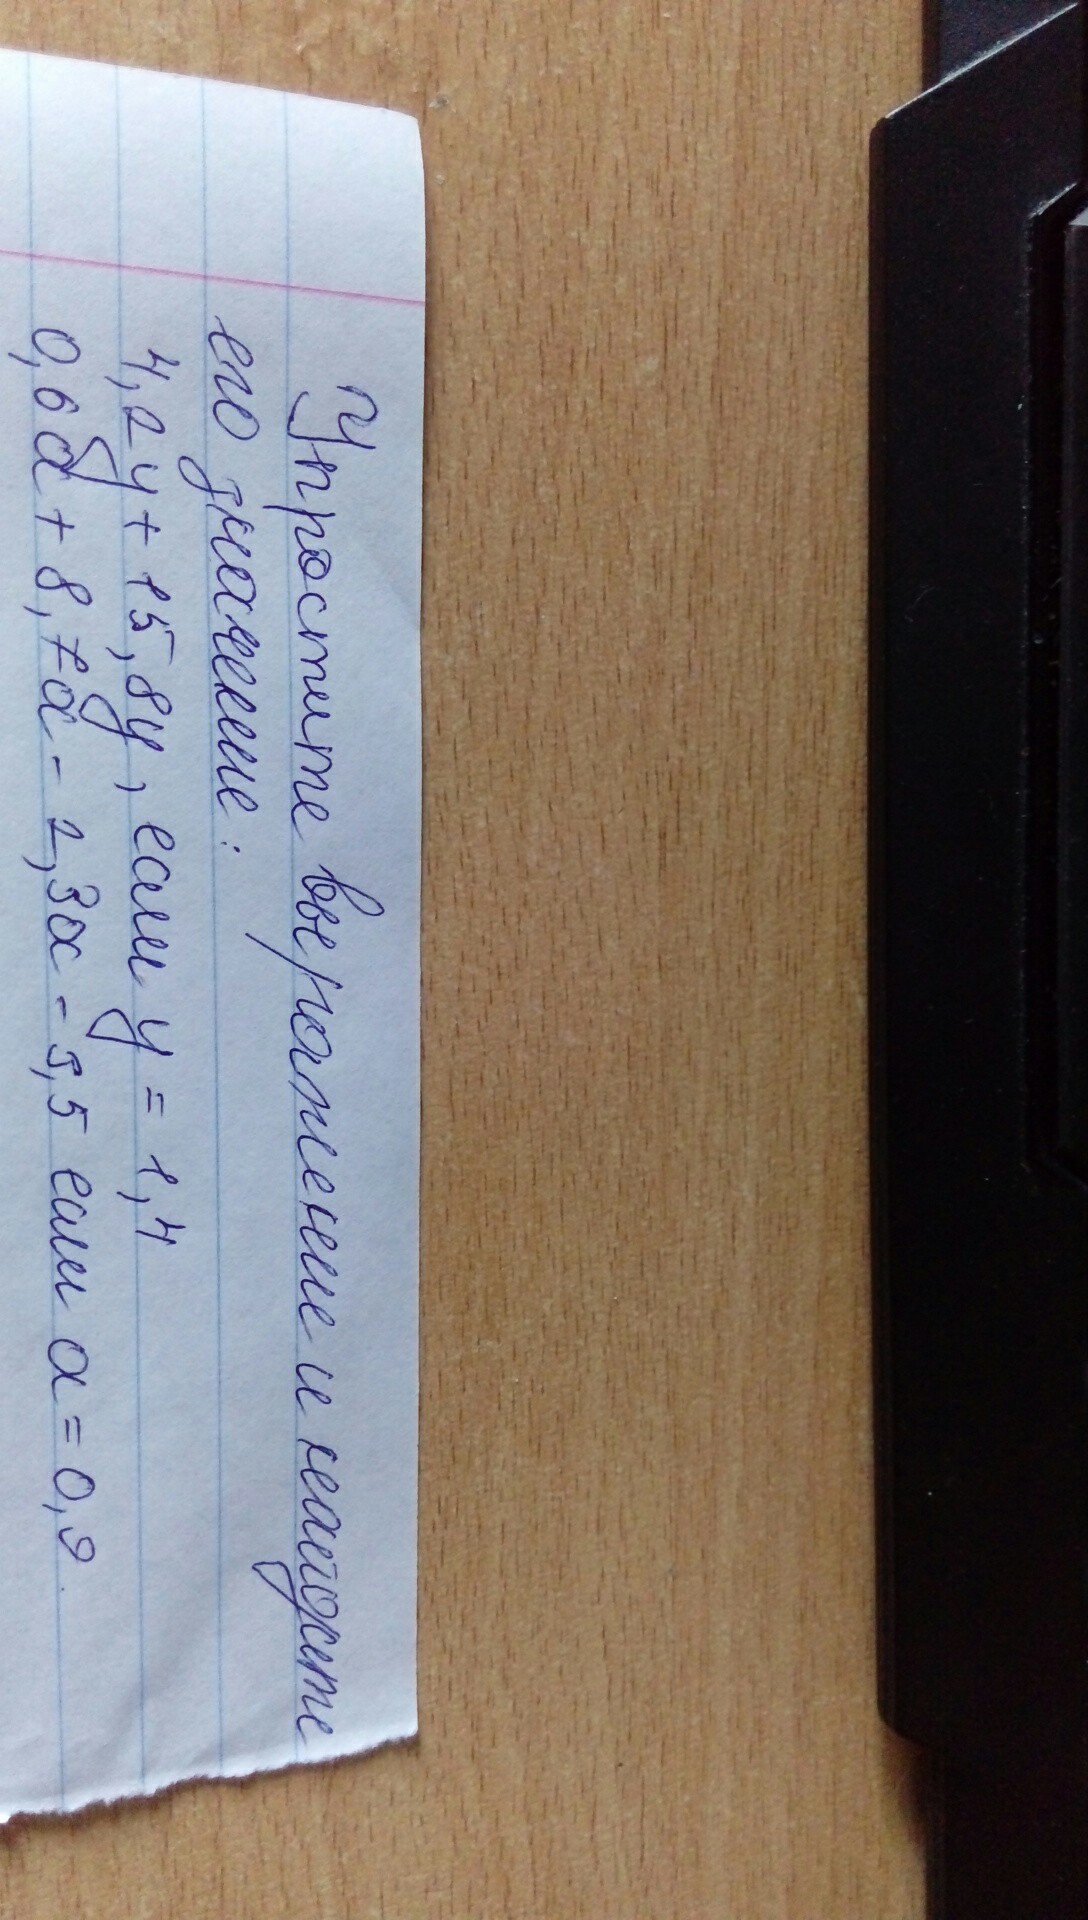 Упростите выражение и найдите
его значение:
4,2y + 15,8y, если y = 1,4
0,6a + 8,7a - 2,3a - 5,5 если a = 0,9